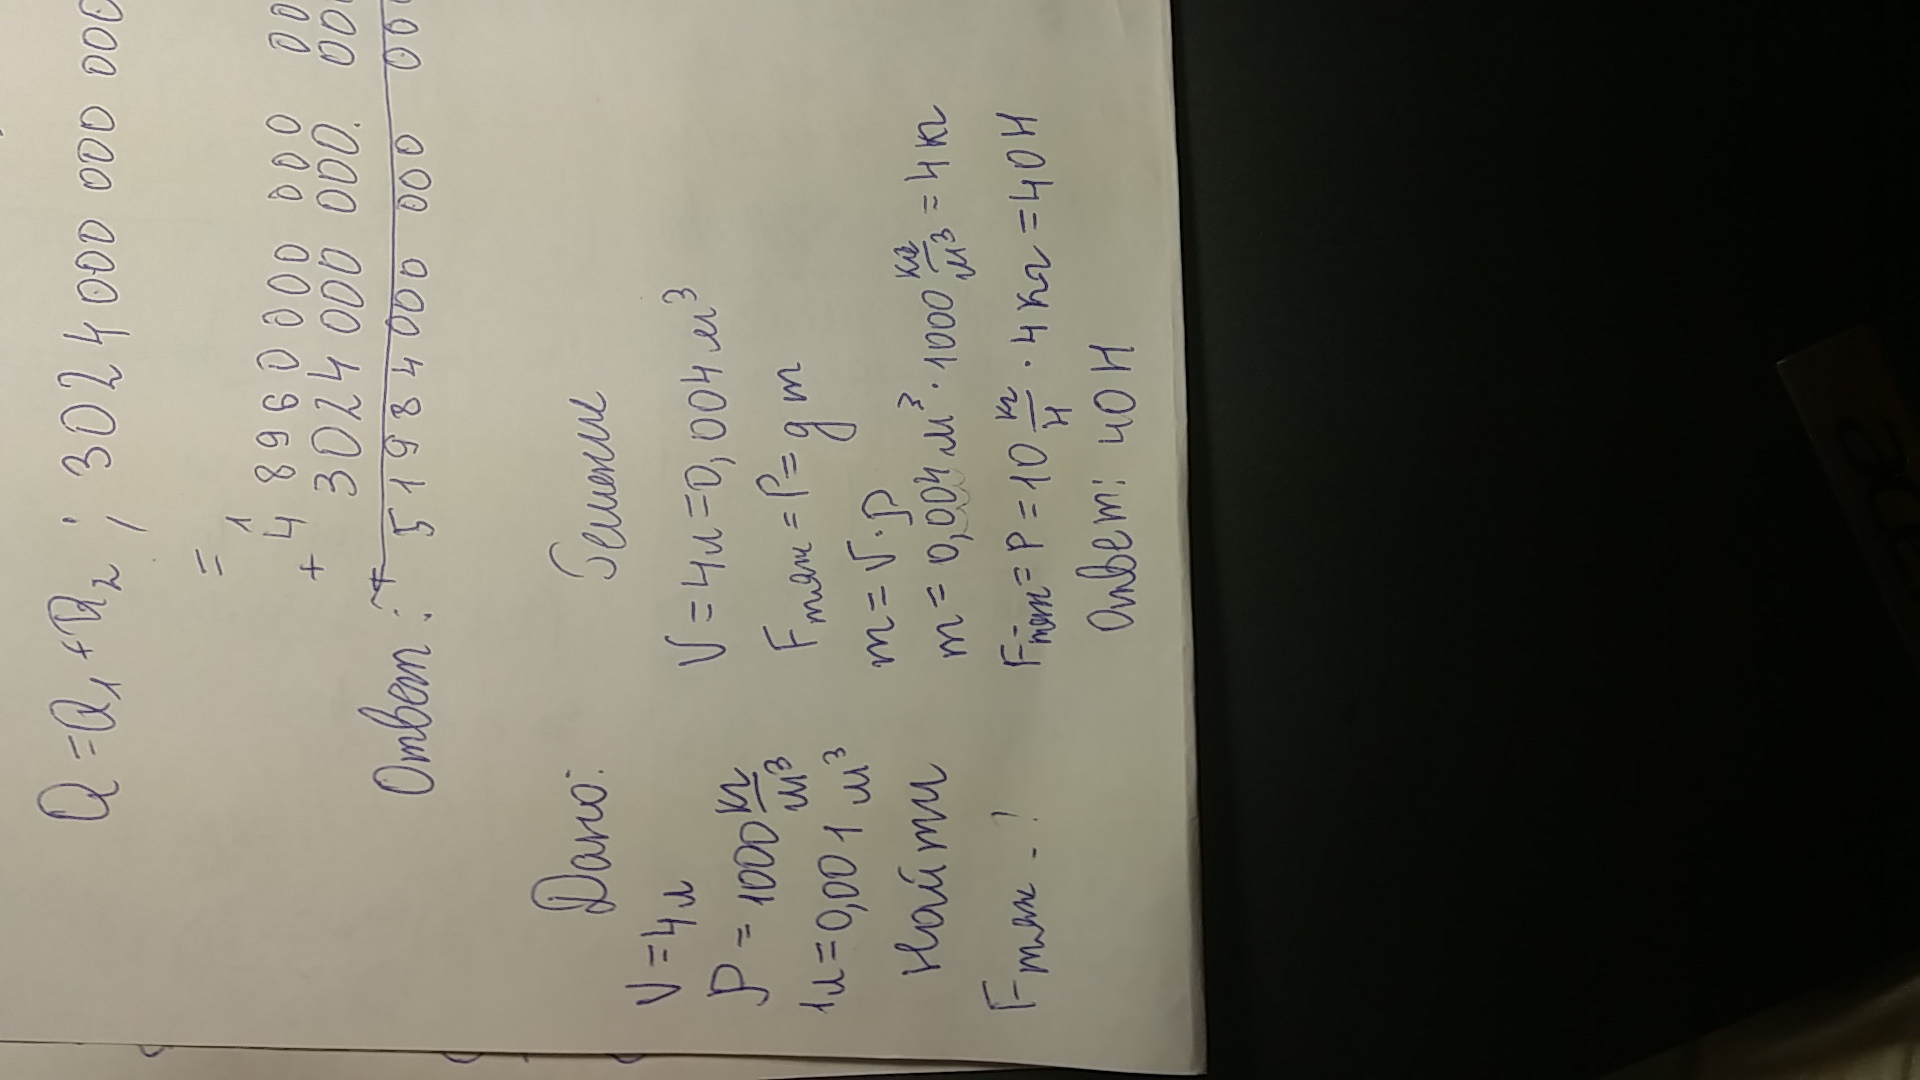 Q = Q₁ + Q₂ ; 3024 000 000 000
=
1
4 8960 000 000 00
+ 3024 000 000. 000
Ответ: 5 1984 000 000 000
Дано:
V = 4л
ρ = 1000 кг/м³
1л = 0,001 м³
Найти
Fтяж - ?
Решение
V = 4л = 0,004 м³
Fтяж = P = g m
m = V · ρ
m = 0,004 м³ · 1000 кг/м³ = 4 кг
Fтяж = P = 10 кг/Н · 4 кг = 40 Н
Ответ: 40 Н